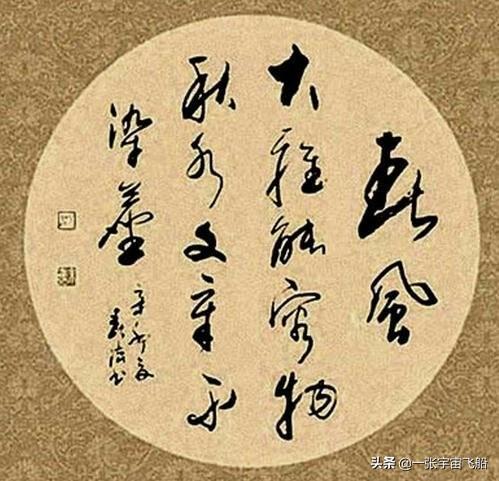 春風
大雅能容物
秋水文章不
染塵
头条 @一张宇宙飞船